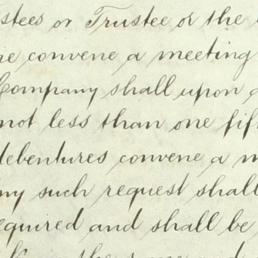 stees or Trustee or the
re convene a meeting
Company shall upon a
not less than one fif
debentures convene a m
ny such request shall
equired and shall be